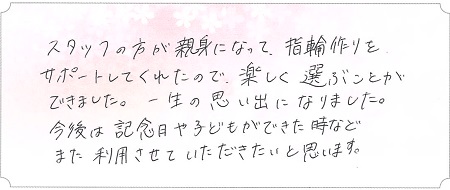 スタッフの方が親身になって、指輪作りを
サポートしてくれたので、楽しく選ぶことが
できました。一生の思い出になりました。
今後は記念日や子どもができた時など
また利用させていただきたいと思います。